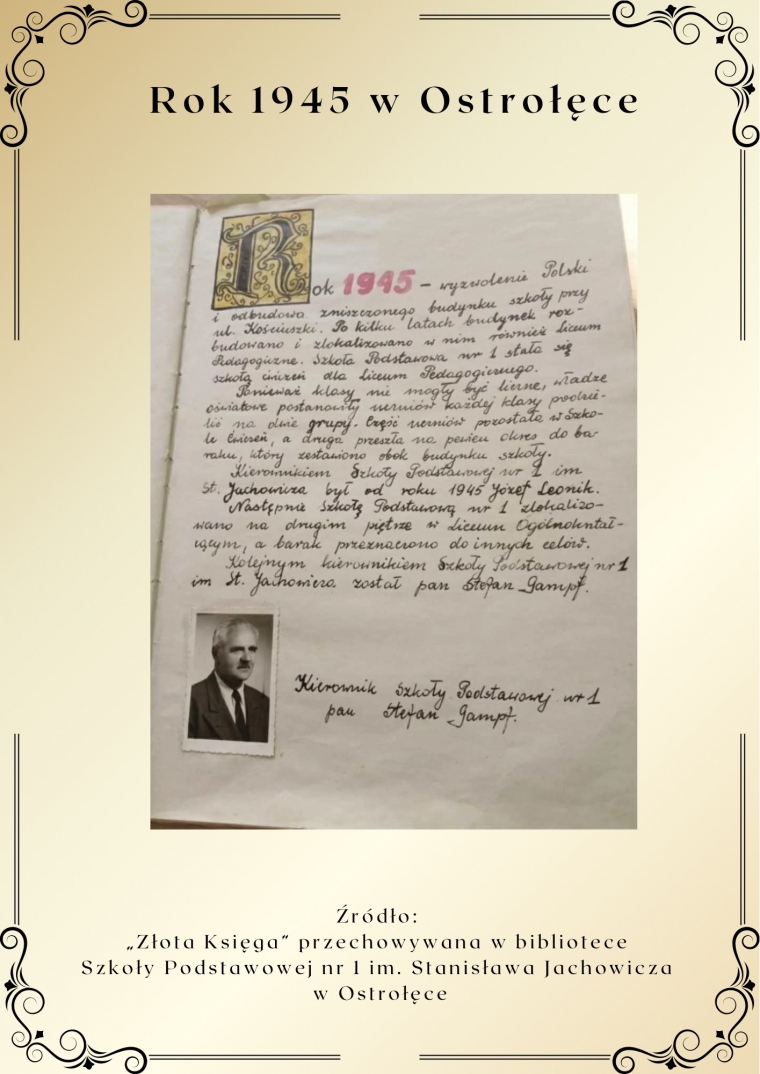 Rok 1945 w Ostrołęce
Rok 1945 – wyzwolenie Polski
i odbudowa zniszczonego budynku szkoły przy
ul. Kościuszki. Po kilku latach budynek roz-
budowano i zlokalizowano w nim również Liceum
Pedagogiczne. Szkoła Podstawowa nr 1 stała się
szkołą ćwiczeń dla Liceum Pedagogicznego.
Ponieważ klasy nie mogły być liczne, władze
oświatowe postanowiły uczniów każdej klasy podzie-
lić na dwie grupy. Część uczniów pozostała w Szko-
le Ćwiczeń, a druga przeszła na pewien okres do ba-
raku, który zestawiono obok budynku szkoły.
Kierownikiem Szkoły Podstawowej nr 1 im
St. Jachowicza był od roku 1945 Józef Leonik.
Następnie Szkołę Podstawową nr 1 zlokalizo-
wano na drugim piętrze w Liceum Ogólnokształ-
cącym, a barak przeznaczono do innych celów.
Kolejnym kierownikiem Szkoły Podstawowej nr 1
im St. Jachowicza został pan Stefan Gampf.
Kierownik Szkoły Podstawowej nr 1
pan Stefan Gampf.
Źródło:
„Złota Księga” przechowywana w bibliotece
Szkoły Podstawowej nr 1 im. Stanisława Jachowicza
w Ostrołęce